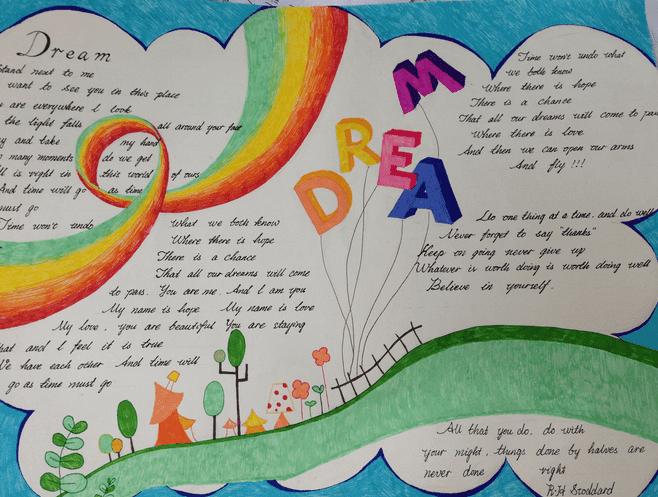 Dream
Stand next to me
want to see you in this place
are everywhere I look
the light falls all around your feet
and take my hand
many moments do we get
is right in this world of ours
And time will go as time
must go
Time won't undo What we both know
Where there is hope
There is a chance
That all our dreams will come
to pass. You are me. And I am you
My name is hope My name is love
My love, you are beautiful You are staying
that and I feel it is true
We have each other And time will
go as time must go
DREAM
Time won't undo what
we both know
Where there is hope
There is a chance
That all our dreams will come to pass
Where there is love
And then we can open our arms
And fly !!!
Do one thing at a time. and do well
Never forget to say "thanks"
Keep on going never give up
Whatever is worth doing is worth doing well
Believe in yourself.
All that you do, do with
your might, things done by halves are
never done right
R.H Stoddard